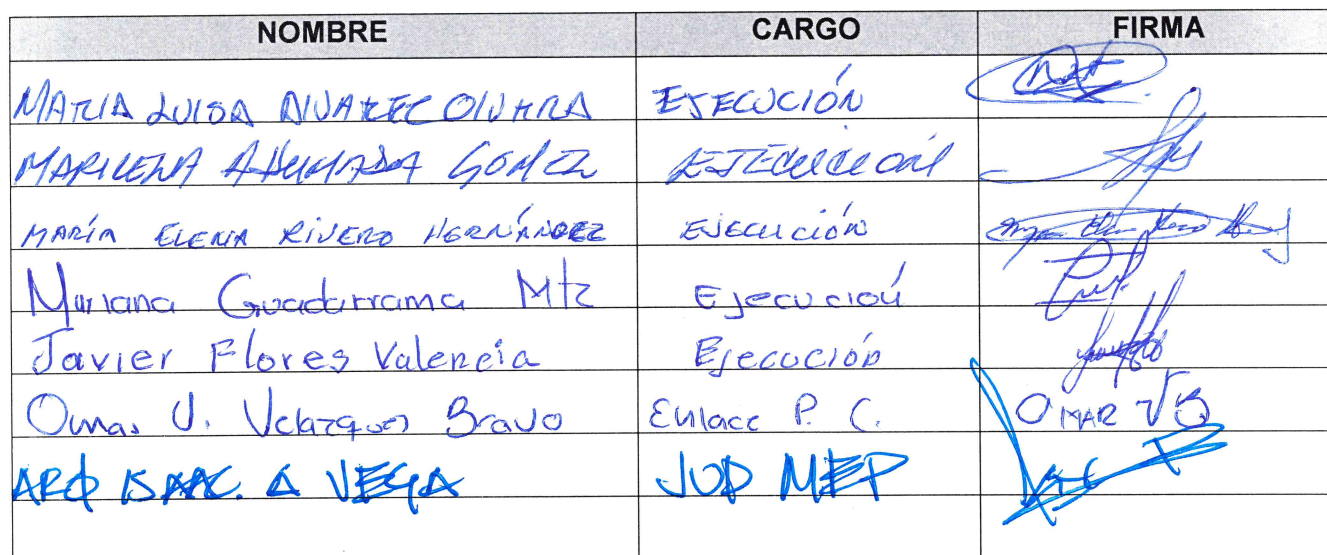 NOMBRE CARGO FIRMA
MARIA LUISA ALVAREZ OLVERA EJECUCIÓN
MARILENA AHUMADA GOMEZ EJECUCION
MARÍA ELENA RIVERO HERNÁNDEZ EJECUCIÓN
Mariana Guadarrama Mtz Ejecución
Javier Flores Valencia Ejecución
Omar V. Velazquez Bravo Enlace P. C. OMAR VB
ARQ ISAAC. A VEGA JUD MEP